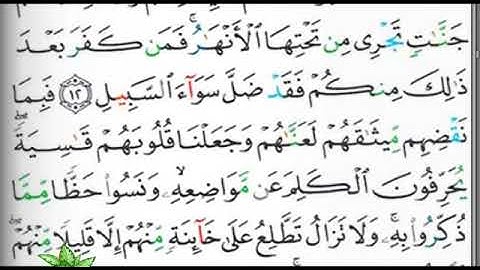 جَنَّٰتٍ تَجْرِى مِن تَحْتِهَا ٱلْأَنْهَٰرُ ۚ فَمَن كَفَرَ بَعْدَ
ذَٰلِكَ مِنكُمْ فَقَدْ ضَلَّ سَوَآءَ ٱلسَّبِيلِ ۝١٢ فَبِمَا
نَقْضِهِم مِّيثَٰقَهُمْ لَعَنَّٰهُمْ وَجَعَلْنَا قُلُوبَهُمْ قَٰسِيَةً ۖ
يُحَرِّفُونَ ٱلْكَلِمَ عَن مَّوَاضِعِهِۦ ۙ وَنَسُوا۟ حَظًّا مِّمَّا
ذُكِّرُوا۟ بِهِۦ ۚ وَلَا تَزَالُ تَطَّلِعُ عَلَىٰ خَآئِنَةٍ مِّنْهُمْ إِلَّا قَلِيلًا مِّنْهُمْ ۖ